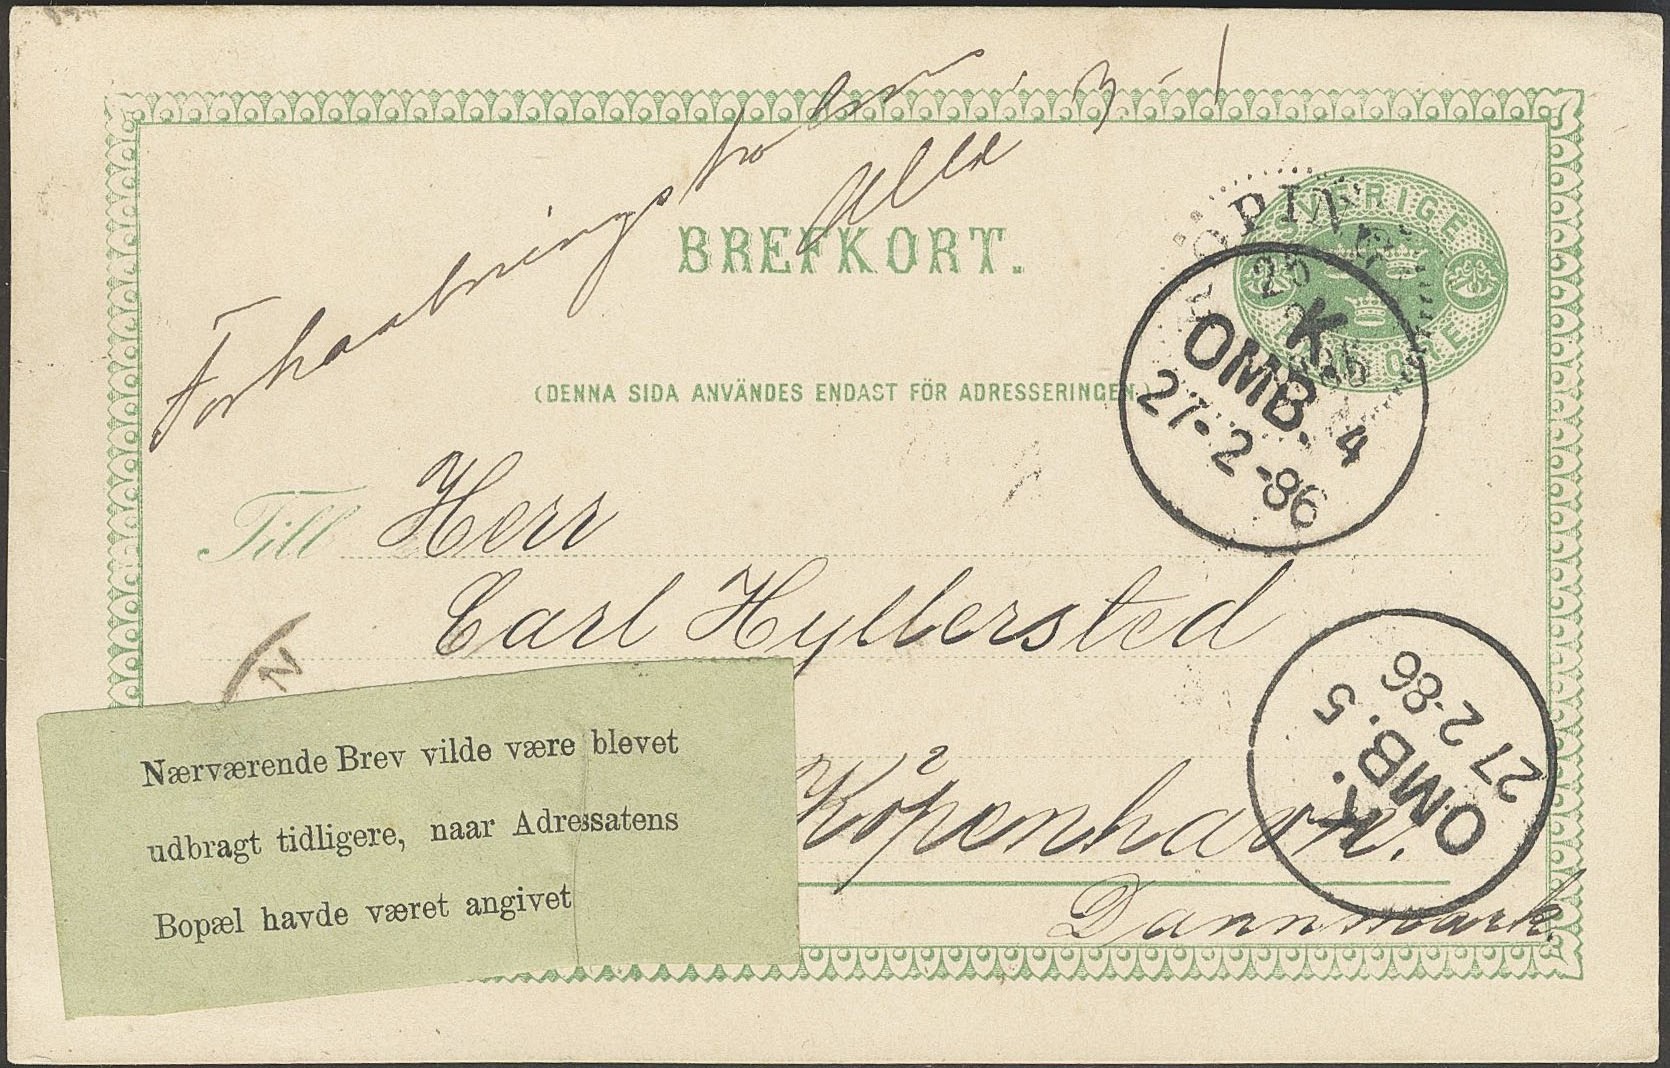 Forhaabningsholms
Alle
3 - 1
BREFKORT.
SVERIGE
ÖRE
KÖPING
25
K.
OMB. 4
27-2-86
(DENNA SIDA ANVÄNDES ENDAST FÖR ADRESSERINGEN.)
Till Herr
Carl Hyllersted
N
Köpenhavn.
Dannmark.
K.
OMB. 5
27 2-86
Nærværende Brev vilde være blevet
udbragt tidligere, naar Adressatens
Bopæl havde været angivet